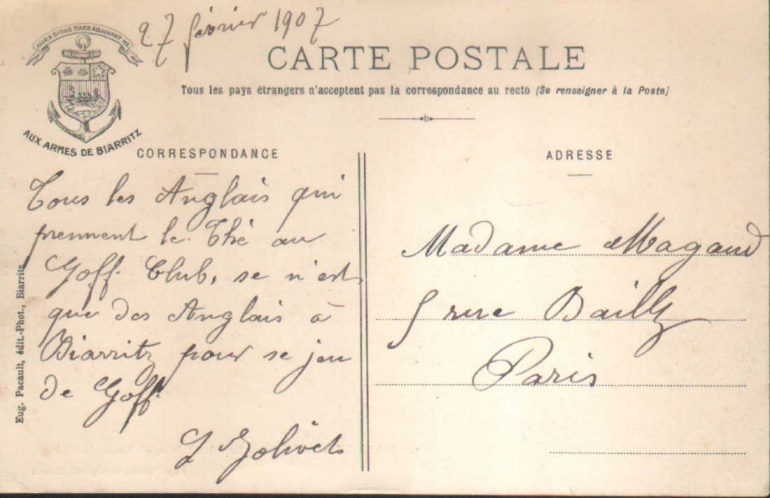 27 février 1907
CARTE POSTALE
Tous les pays étrangers n'acceptent pas la correspondance au recto (Se renseigner à la Poste)
AUX ARMES DE BIARRITZ
CORRESPONDANCE
Tous les Anglais qui
prennent le Thé au
Goff. Club, se n'est
que des Anglais à
Biarritz pour se jeu
de Goff.
ADRESSE
Madame Magaud
5 rue Bailly
Paris
Eug. Pacault, édit.-Phot., Biarritz